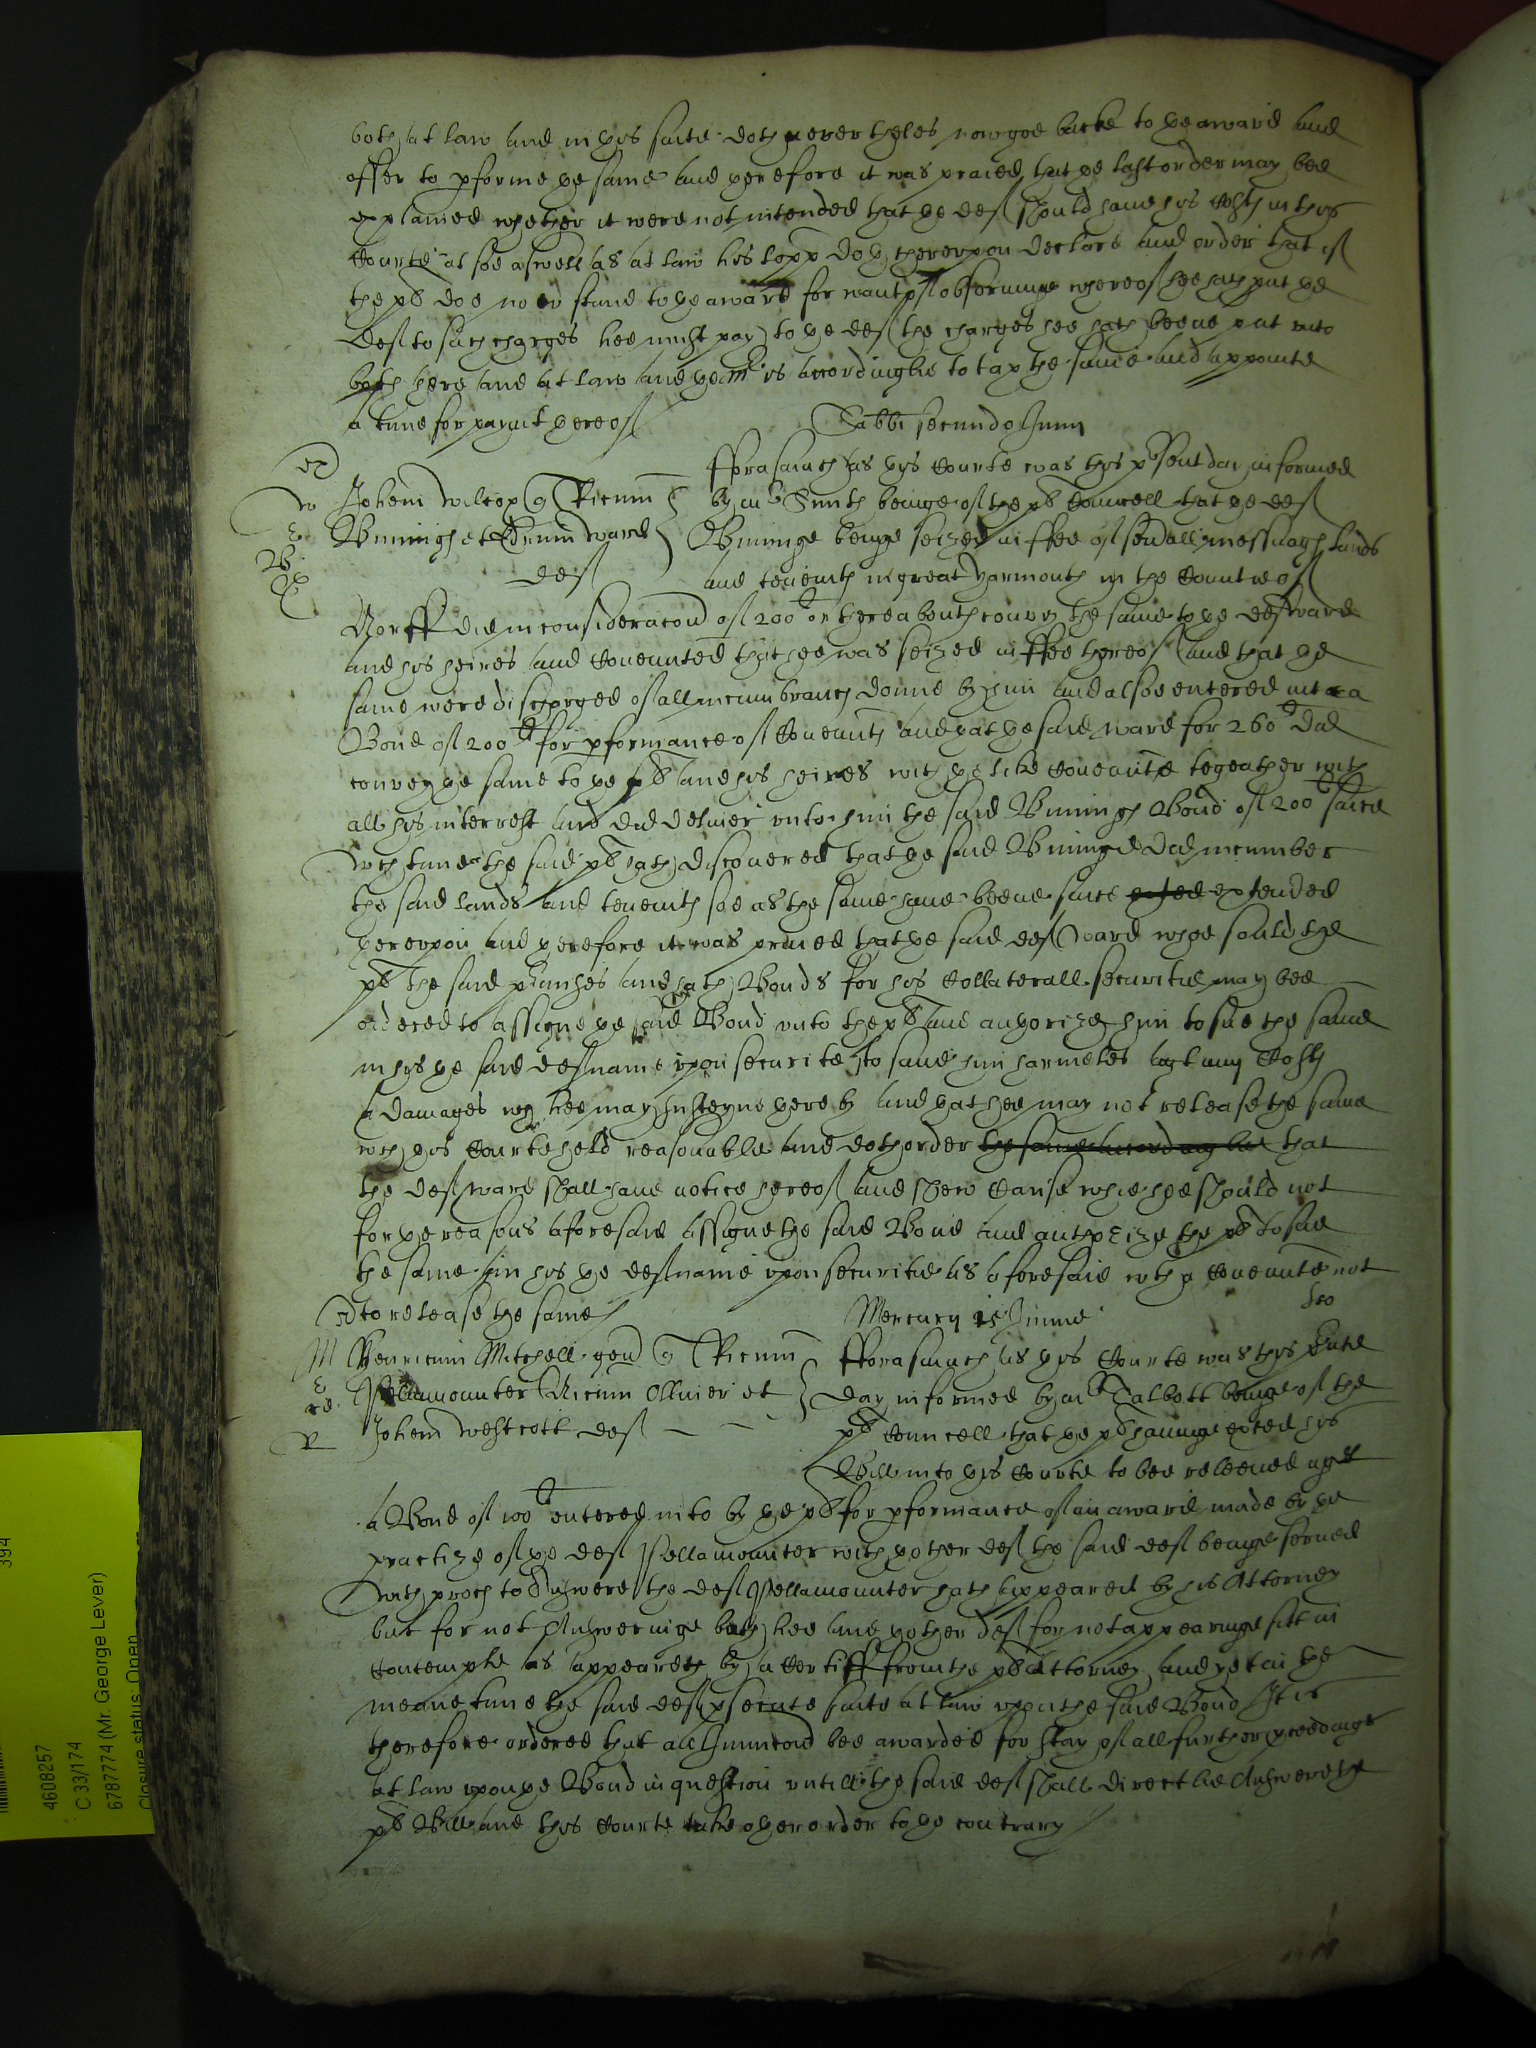 both at law and in this suite doth neverthles now goe backe to the award and
offer to pforme the same and therefore it was praied that the last order may bee
explained whether it were not intended that the deft should have his Costs in this
Courte alsoe aswell as at law his lopp doth therevpon declare and order that if
the plt doe now stand to the award for want of pformings whereof hee hath put the
deft to such charges hee must pay to the deft the charges hee hath beene put vnto
both here and at law and the mr is accordinglie to tax the same and appointe
a time for paymt thereof
Sabbi secundo Junii
fforasmuch as this Courte was this psent day informed
Johem Wilcox q Ricum
by mr Smith beinge of the plt Councell that the deft
Binnings et Edrum Ward
Binninge beinge seized in ffee of sevrall messuages lands
deft
and tenemts in great Yarmouth in the Countie of
Norff did in consideracon of 200l or thereabouts convey the same to the deft Ward
and his heires and Covenanted that hee was seized in ffee thereof and that the
same were discharged of all incumbrances donne by him and alsoe entered into a
Bond of 200l for pformance of Covenants and that the said Ward for 260l did
convey the same to the plt and his heires with the like Covenants togeather with
all his interrest and did deliver vnto him the said Binnings Bond of 200l since
wch time the said plt hath discovered that the said Binninge did incumber
the said lands and tenemts soe as the same have beene since exted extended
therevpon and therefore it was praied that the said deft Ward whoe sould the
plt the said pmisses and hath Bonds for his Collaterall securitie may bee
ordered to assigne the said Bond vnto the plt and authorize him to sue the same
in his the said deft name vpon securitie to save him harmeles agt any Costs
& damages wch hee may susteyne thereby and that hee may not release the same
wch this Courte held reasonable and doth order the same accordinglie that
the deft Ward shall have notice hereof and shew Cause whie hee should not
for the reasons aforesaid assigne the said Bond and authorize the plt to sue
the same in his the deft name vpon securitie as aforesaid with a Covenante not
to release the same
Mercury is Junii
Henricum Mitchell gen q Ricum
fforasmuch as this Courte was this
Pellamounter Nicum Ollivier et
day informed by mr Talbott beinge of the
Johem Westcott deft
plt Councell that the plt havinge exted his
Bill into this Courte to bee releeved agt
a Bond of 100l entered into by the plt for pformance of an award made by the
practize of the deft Pellamounter with thother deft the said deft beinge served
with proces to Answere the deft Pellamounter hath appeared by his Attorney
but for not Answeringe both hee and thother deft for not appearinge sitt in
Contempte as appeareth by a Certiff from the plt Attorney and yet in the
meane time the said deft psecute suite at law vpon the said Bond It is
therefore ordered that an Iniunccon bee awarded for stay of all further pceedings
at law vpon the Bond in question vntill the said deft shall directlie Answere the
plt Bill and this Courte take other order to the contrary
394
4608257
C 33/174
6787774 (Mr. George Lever)
Closure status: Open